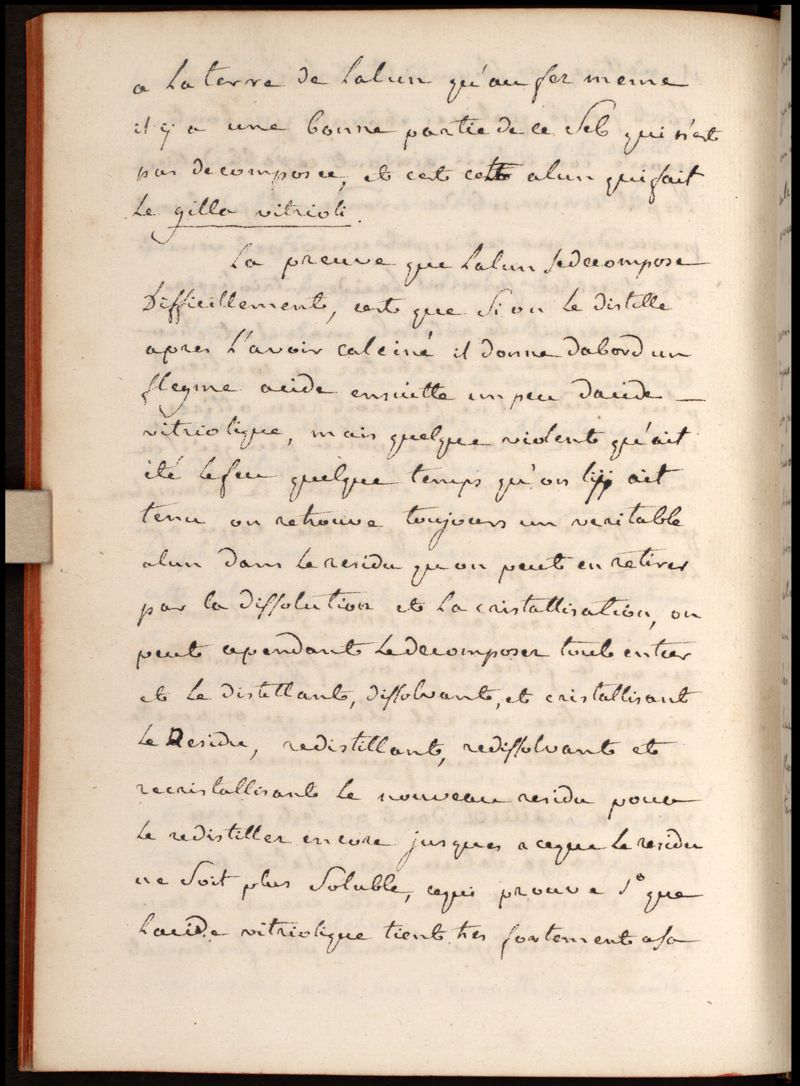 a la terre de lalun qu'au fer meme
il y a une bonne partie de ce Sel qui n'est
pas decomposée, et cest cett alun qui fait
Le gilla vitrioli.
La preuve que Lalun Se decompose
Difficillement, cest que Si on Le distille
apres L'avoir calciné il donne dabord un
flegme acide ensuitte un peu dacide —
vitriolique, mais quelque violent qu'ait
été Le feu quelque temps qu'on l'y ait
tenu on retrouve toujours un veritable
alun dans Le residu qu'on peut en retirer
par la dissolution et La cristallisation, on
peut cependant Le decomposer tout entier
et Le distillant, dissolvant, et cristallisant
Le Residu, redistillant, redissolvant et
recristallisant Le nouveau residu pour
Le redistiller encore jusques a ceque Le residu
ne Soit plus Soluble, cequi prouve 1° que
Lacide vitriolique tient tres fortement a Sa